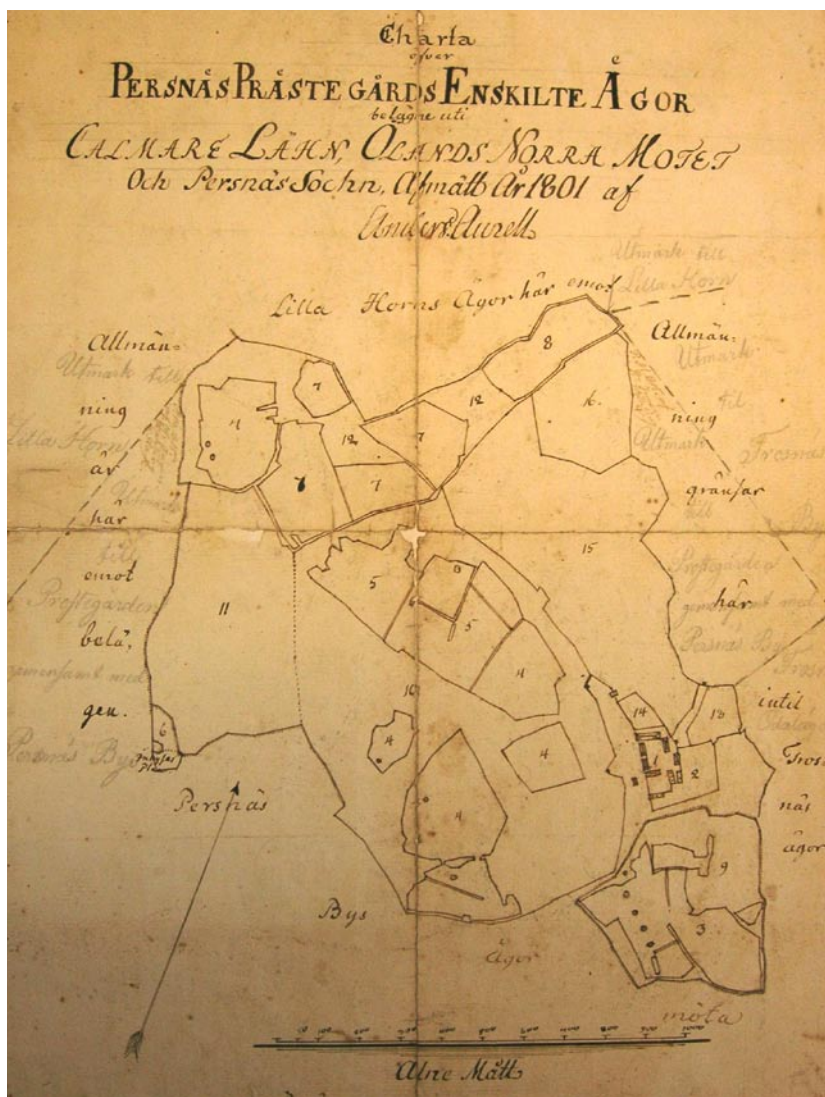 Charta
öfver
PERSNÄS PRÄSTE GÅRDS ENSKILTE ÄGOR
belägne uti
CALMARE LÄHN, ÖLANDS NORRA MOTET
Och Persnäs Sochn, Afmätt År 1801 af
Anders Aurell.
Utmark till
Lilla Horn
Lilla Horns Ägor här emot
Allmän=
ning
är
här
emot
belä,
gen.
Utmark till
Lilla Horns
Utmark
till
Prostegården
gemensamt med
Persnäs By
Allmän=
ning
gränsar
här
intil
Fros
näs
ägor
Utmark
till
till
Prostegården
gemensamt med
Persnäs By
8
7
12
4
12
7
16
7
7
15
5
6
5
11
4
10
6
4
4
14
18
1
2
4
9
3
Persnäs
Bys
Ägor
möta
Alne Mått